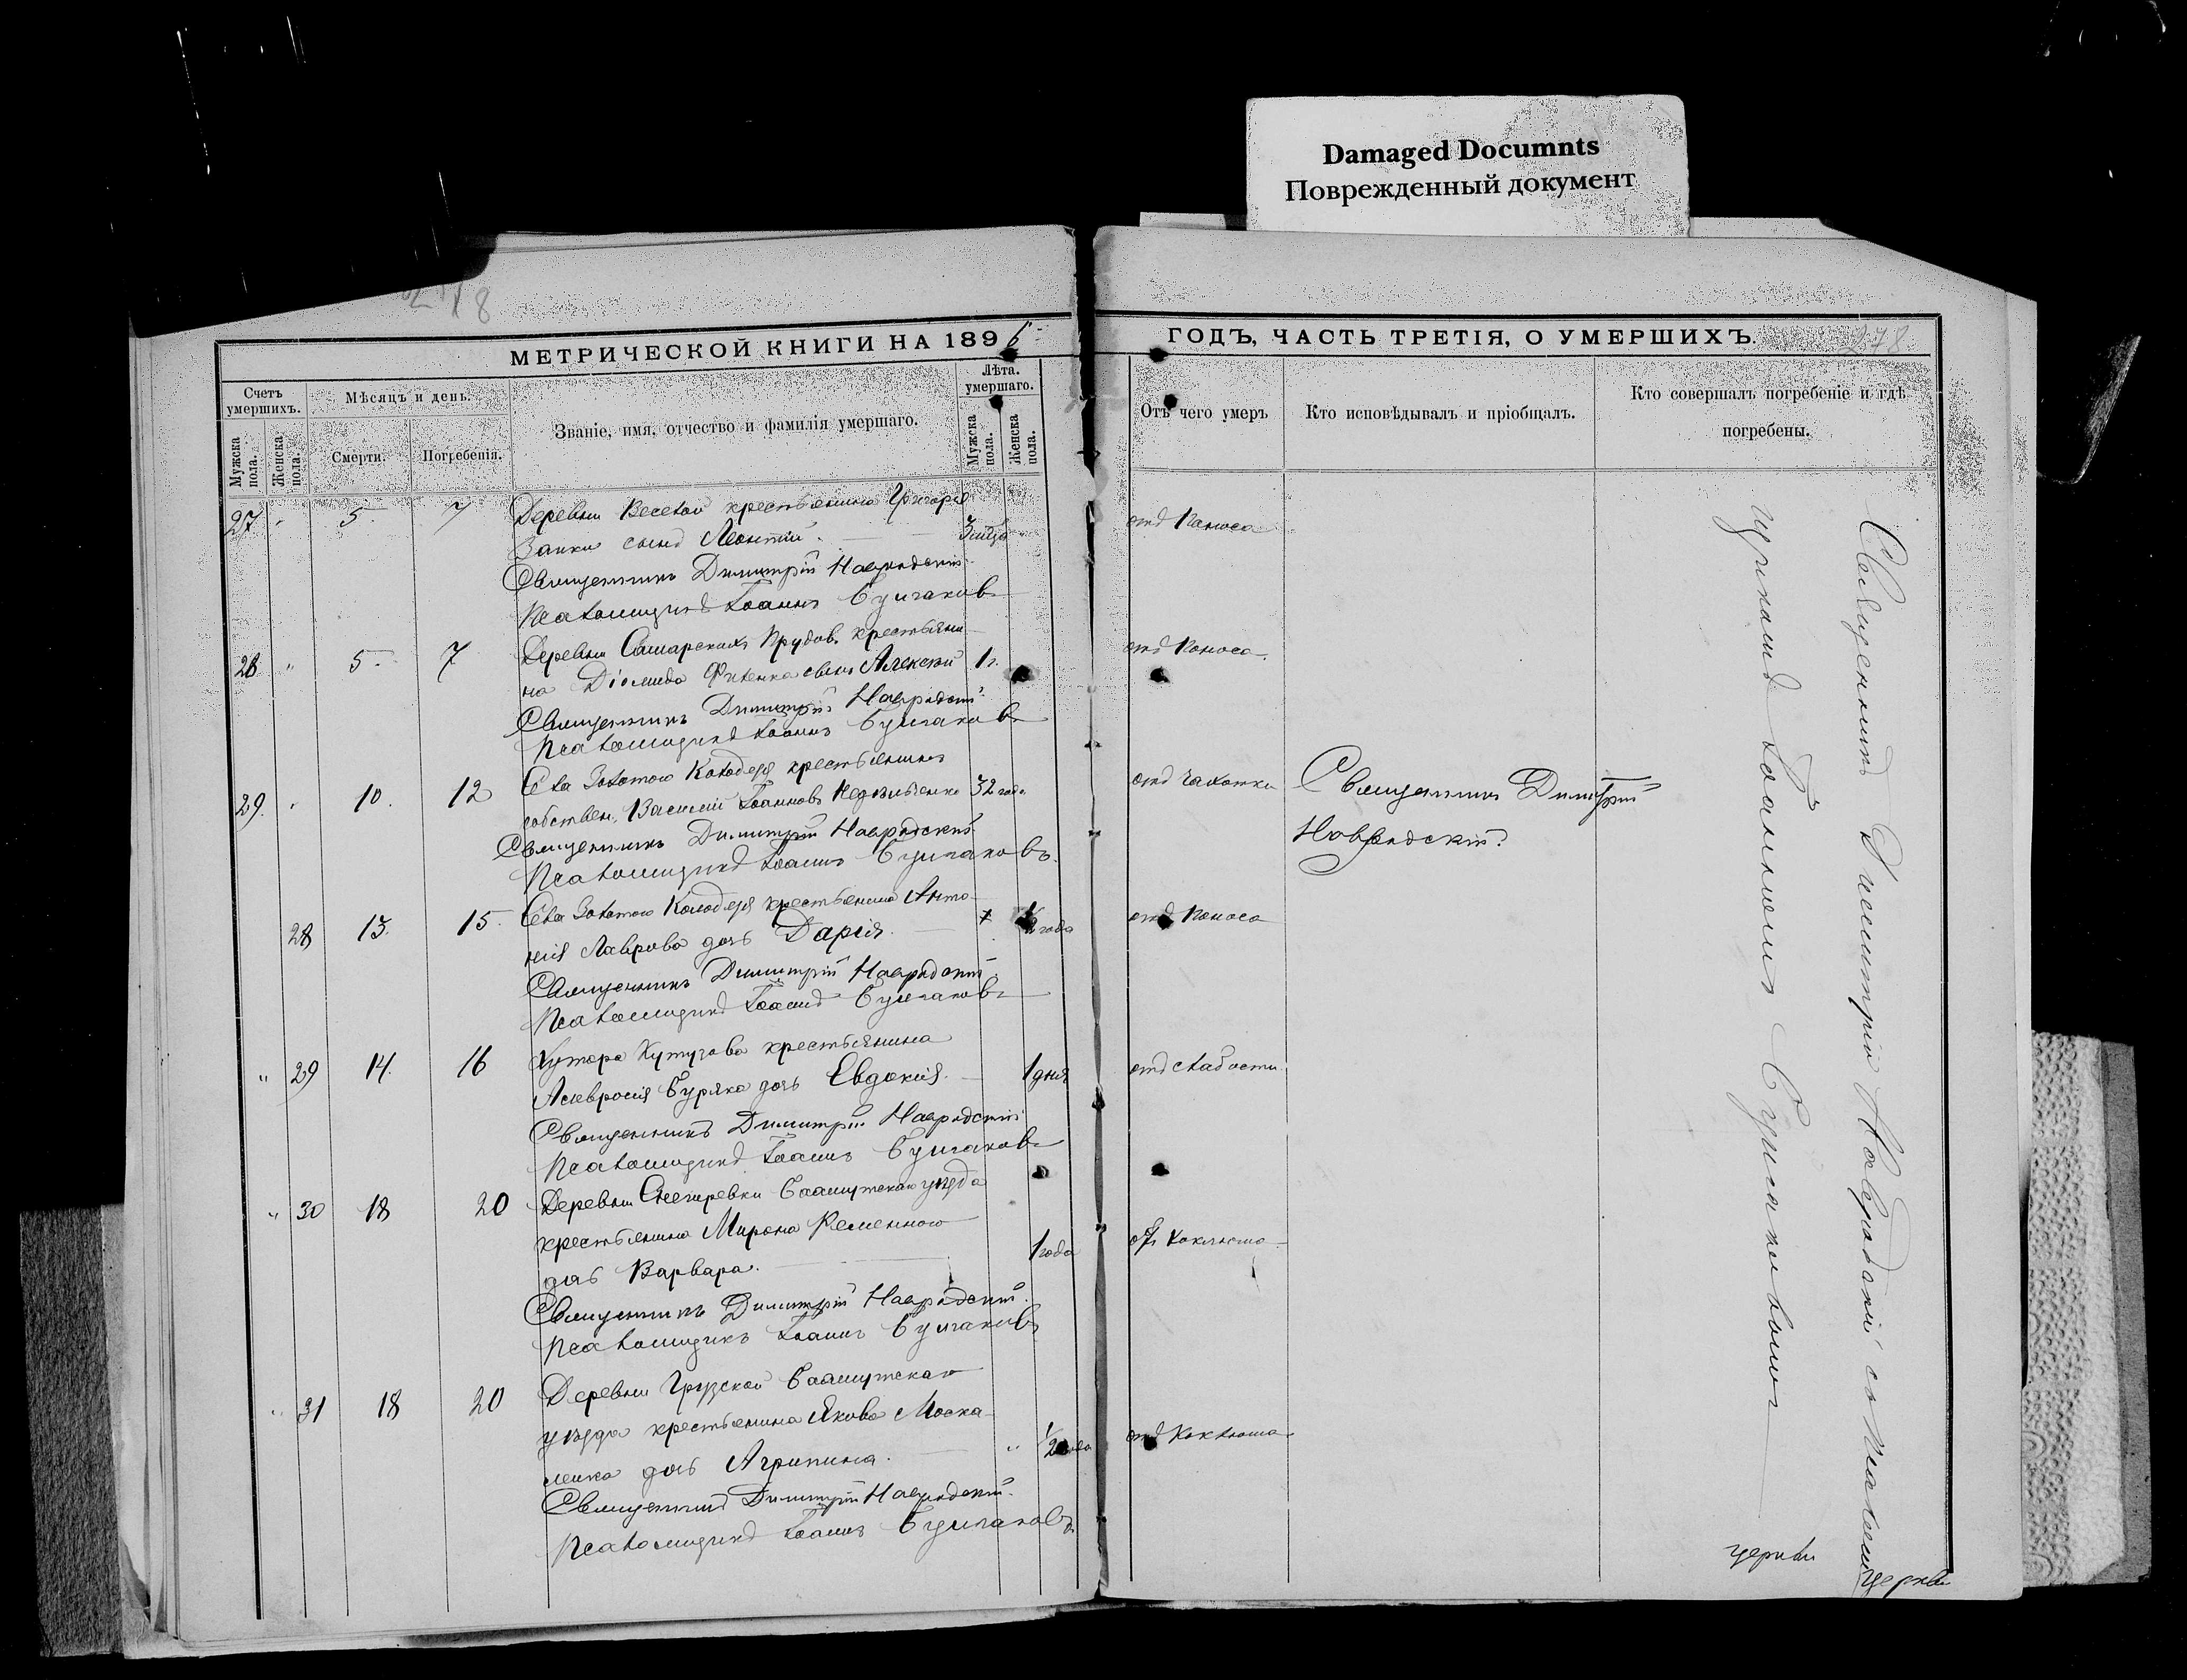 Damaged Documnts
Поврежденный документ
МЕТРИЧЕСКОЙ КНИГИ НА 1896
ГОДЪ, ЧАСТЬ ТРЕТІЯ, О УМЕРШИХЪ.
278
Счетъ умершихъ.
Мужска пола.
Женска пола.
Мѣсяцъ и день.
Смерти.
Погребенія.
Званіе, имя, отчество и фамилія умершаго.
Лѣта. умершаго.
Мужска пола.
Женска пола.
Отъ чего умеръ
Кто исповѣдывалъ и пріобщалъ.
Кто совершалъ погребеніе и гдѣ погребены.
27 " 5 7 Деревни Веселой крестьянина Григорія
Заики сынъ Леонтій. отъ поноса
Священникъ Димитрій Навродскій
Псаломщикъ Іоаннъ Булгаковъ
28 " 5 7 Деревни Самарскихъ Прудовъ крестьяни-
на Діомида сынъ Алексѣй 1 г. отъ поноса
Священникъ Димитрій Навродскій
Псаломщикъ Іоаннъ Булгаковъ
Села Золотого Колодезя крестьянинъ
29. " 10. 12 собствен. Василій Іоанновъ 32 года отъ чахотки Священникъ Димитрій
Навродскій
Священникъ Димитрій Навродскій
Псаломщикъ Іоаннъ Булгаковъ.
28 13. 15 Села Золотого Колодезя крестьянина Анто-
нія Лаврова дочь Дарія. года отъ поноса
Священникъ Димитрій Навродскій
Псаломщикъ Іоаннъ Булгаковъ
" 29 14. 16 Хутора Кутузова крестьянина
Буряка дочь Евдокія. 1 дня отъ слабости
Священникъ Димитрій Навродскій
Псаломщикъ Іоаннъ Булгаковъ
" 30 18 20 Деревни Снегиревки Бахмутскаго уѣзда
крестьянина Мирона Ременного
дочь Варвара. 1 года отъ коклюша
Священникъ Димитрій Навродскій.
Псаломщикъ Іоаннъ Булгаковъ
" 31 18 20 Деревни Грузской Бахмутскаго
уѣзда крестьянина Якова Моска-
ленка дочь Агрипина. " 1/2 года отъ коклюша
Священникъ Димитрій Навродскій.
Псаломщикъ Іоаннъ Булгаковъ
Священникъ Димитрій Навродскій съ псаломщ
щикомъ Іоанномъ Булгаковымъ
церкви